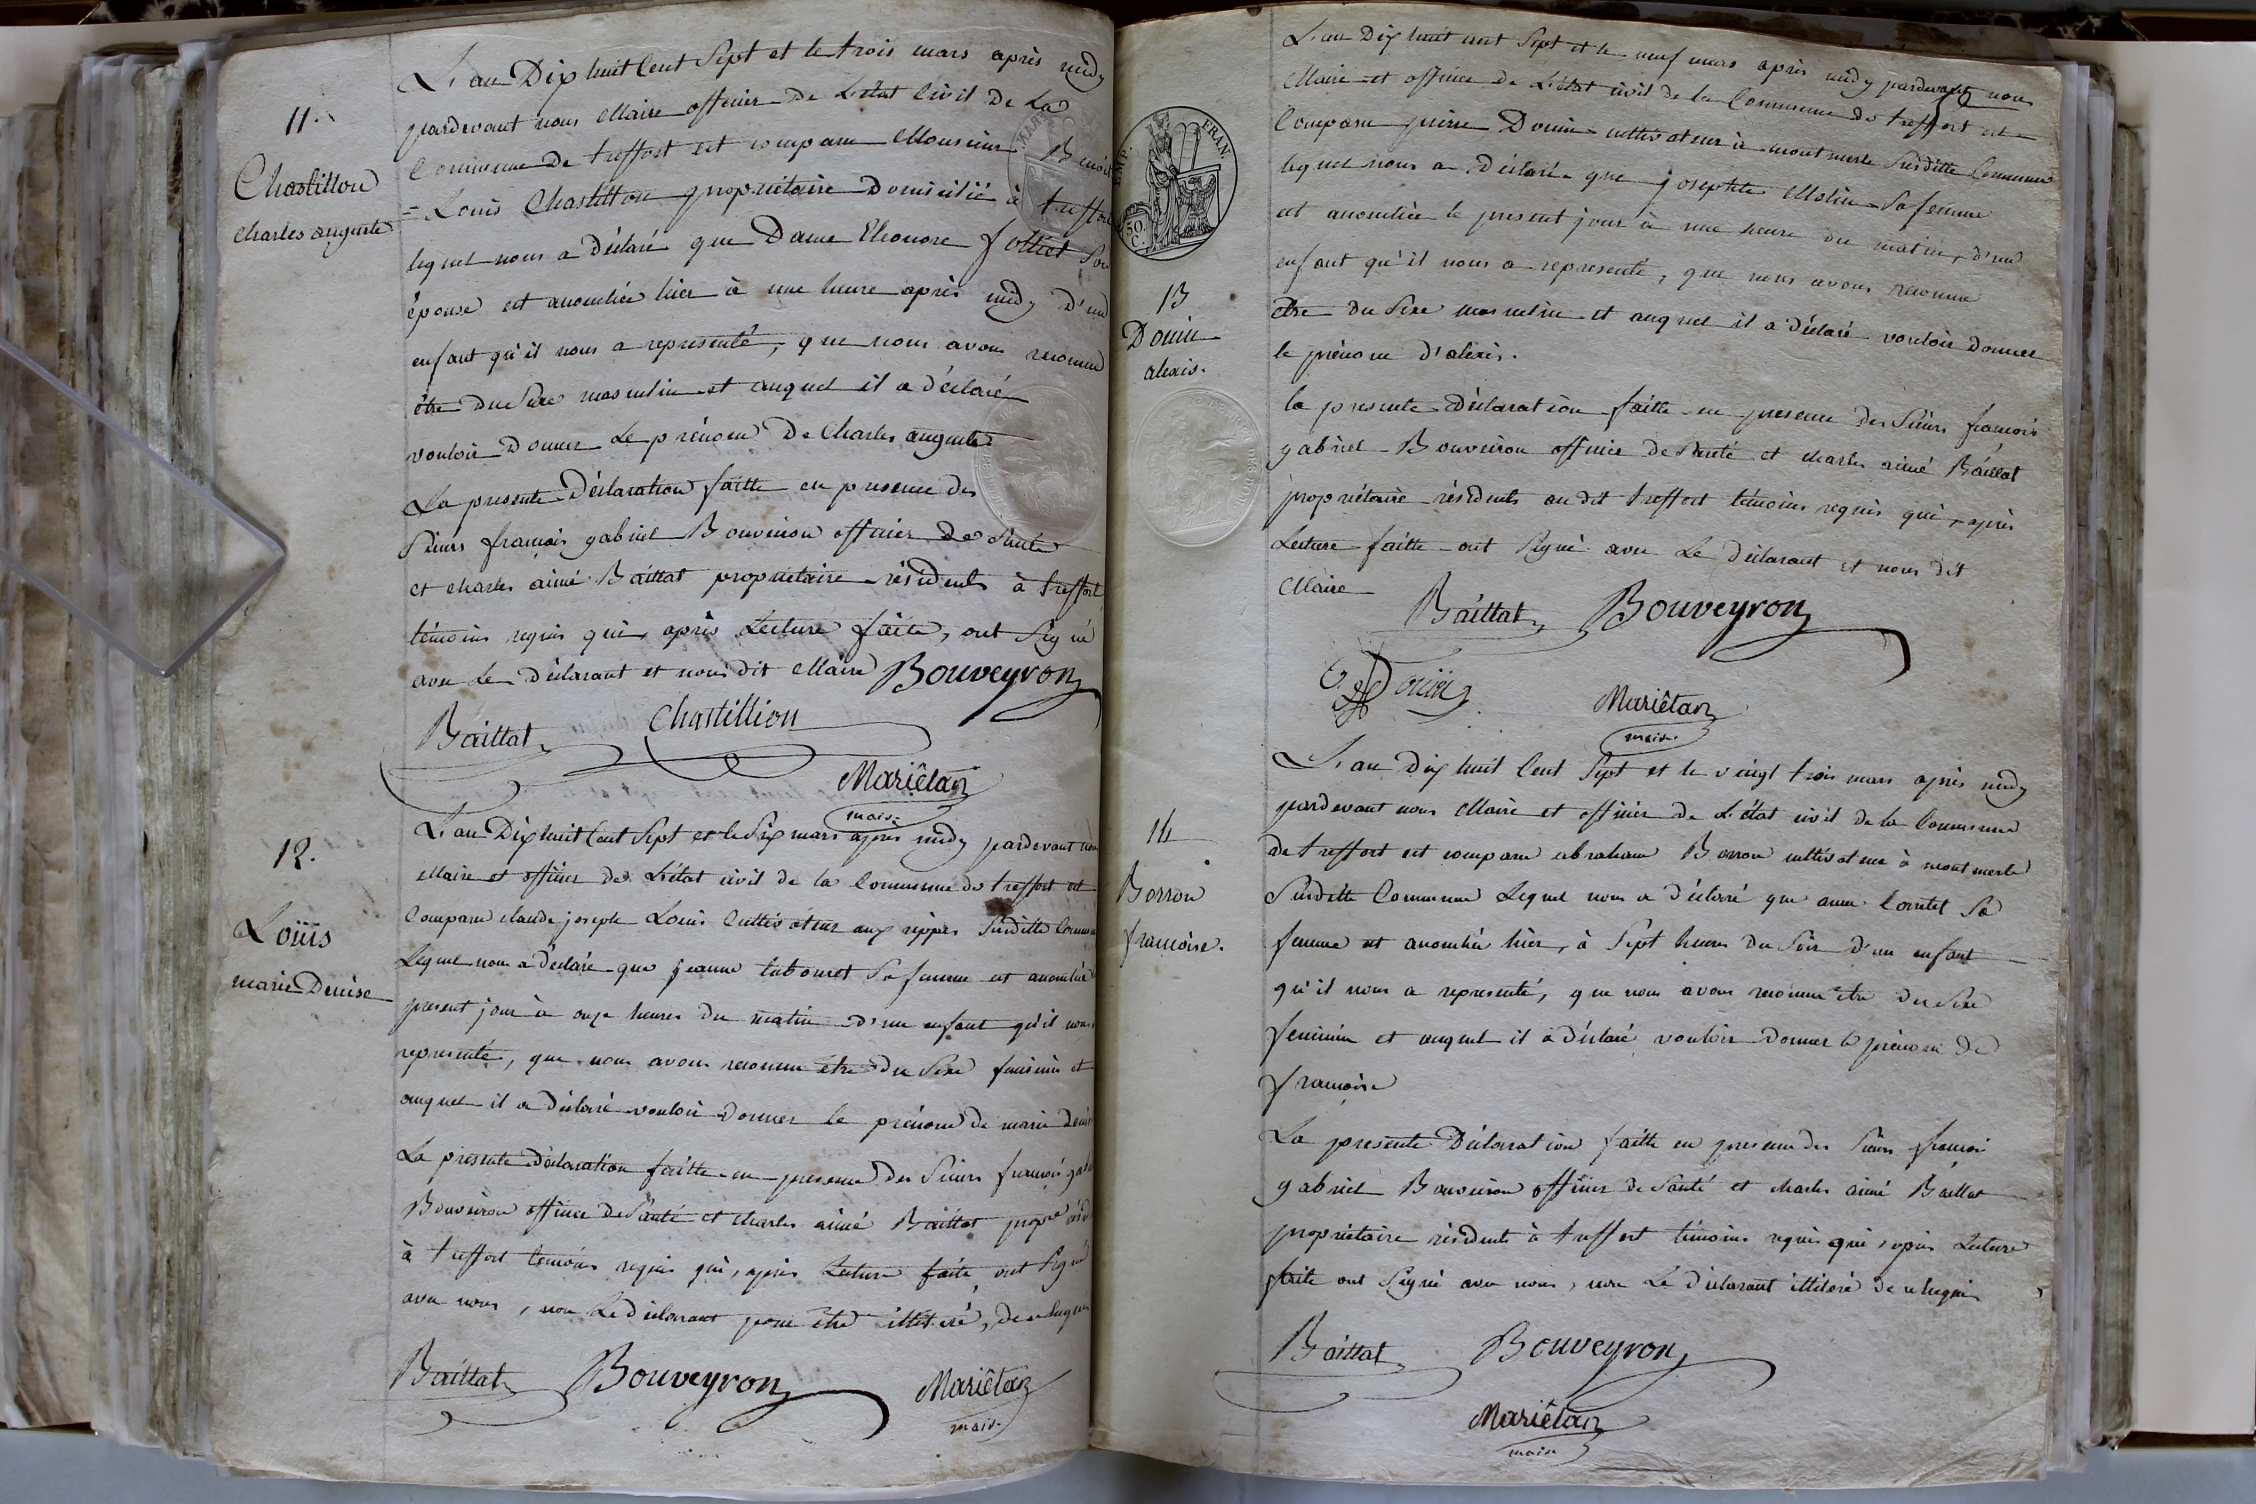 11.
Chastillon
charles auguste
L'an Dix huit Cent Sept et le trois mars après midy
pardevant nous Maire officier de L'état Civil de La
Commune de treffort est comparu Monsieur Benoit
= Louis Chastillon propriétaire domicilié à treffort
lequel nous a déclaré que Dame Eleonore Folliet son
épouse est accouchée hier à une heure après midy d'un
enfant qu'il nous a representé, que nous avons reconnu
être du Sexe masculin et auquel il a déclaré
vouloir donner le prénom de Charles auguste
La presente déclaration faitte en presence des
Sieurs françois gabriel Bouveiron officier de Santé
et charles aimé Baillat propriétaire résidents à treffort
témoins requis qui, après Lecture faite, ont Signé
avec Le déclarant et nous dit Maire Bouveyron
Baillat Chastillion
Mariêtan
maire
12.
Loüis
marie Denise
L'an Dix huit Cent Sept et le Six mars après midy pardevant nous
Maire et officier de L'état civil de la Commune de treffort est
Comparu claude joseph Louis Cultivateur aux rippes Susditte Commune
Lequel nous a déclaré que jeanne tabouret Sa femme est accouchée
present jour à onze heures du matin d'un enfant qu'il nous
representé, que nous avons reconnu être du Sexe feminin et
auquel il a déclaré vouloir donner le prénom de marie denise
La présente déclaration faitte en presence des Sieurs françois gabriel
Bouveiron officier de Santé et charles aimé Baillat propre
à treffort témoins requis qui, après Lecture faite, ont Signé
avec nous, non Le déclarant pour être illiteré, de ce requis
Baillat Bouveyron Mariêtan
maire
EMP. FRAN.
50. C.
13
Douin
alexis.
L'an Dix huit cent Sept et le neuf mars après midy pardevant nous
Maire et officier de L'état civil de la Commune de treffort est
Comparu pierre Douin cultivateur à montmerle Susditte Commune
lequel nous a déclaré que josephte Molin Sa femme
est accouchée le present jour à une heure du matin, d'un
enfant qu'il nous a representé, que nous avons reconnu
être du Sexe masculin et auquel il a déclaré vouloir donner
le prénom d'alexis.
la presente déclaration faitte en presence des Sieurs françois
gabriel Bouveiron officier de Santé et charles aimé Baillat
propriétaire résidents au dit treffort témoins requis qui, après
Lecture faitte ont Signé avec Le déclarant et nous dit
Maire
Baillat Bouveyron
Douin Mariêtan
maire
14
Borron
françoise.
L'an dix huit Cent Sept et le vingt trois mars après midy
pardevant nous Maire et officier de L'état civil de la Commune
de treffort est comparu abraham Borron cultivateur à montmerle
Susditte Commune Lequel nous a déclaré que anne Sa
femme est accouchée hier, à Sept heures du Soir d'un enfant
qu'il nous a representé, que nous avons reconnu être du Sexe
feminin et auquel il a déclaré vouloir donner le prénom de
françoise
La presente déclaration faitte en presence des Sieurs françois
gabriel Bouveiron officier de Santé et charles aimé Baillat
propriétaire résidents à treffort témoins requis qui, après Lecture
faite ont Signé avec nous, non Le déclarant illiteré de ce requis
Baillat Bouveyron
Mariêtan
maire